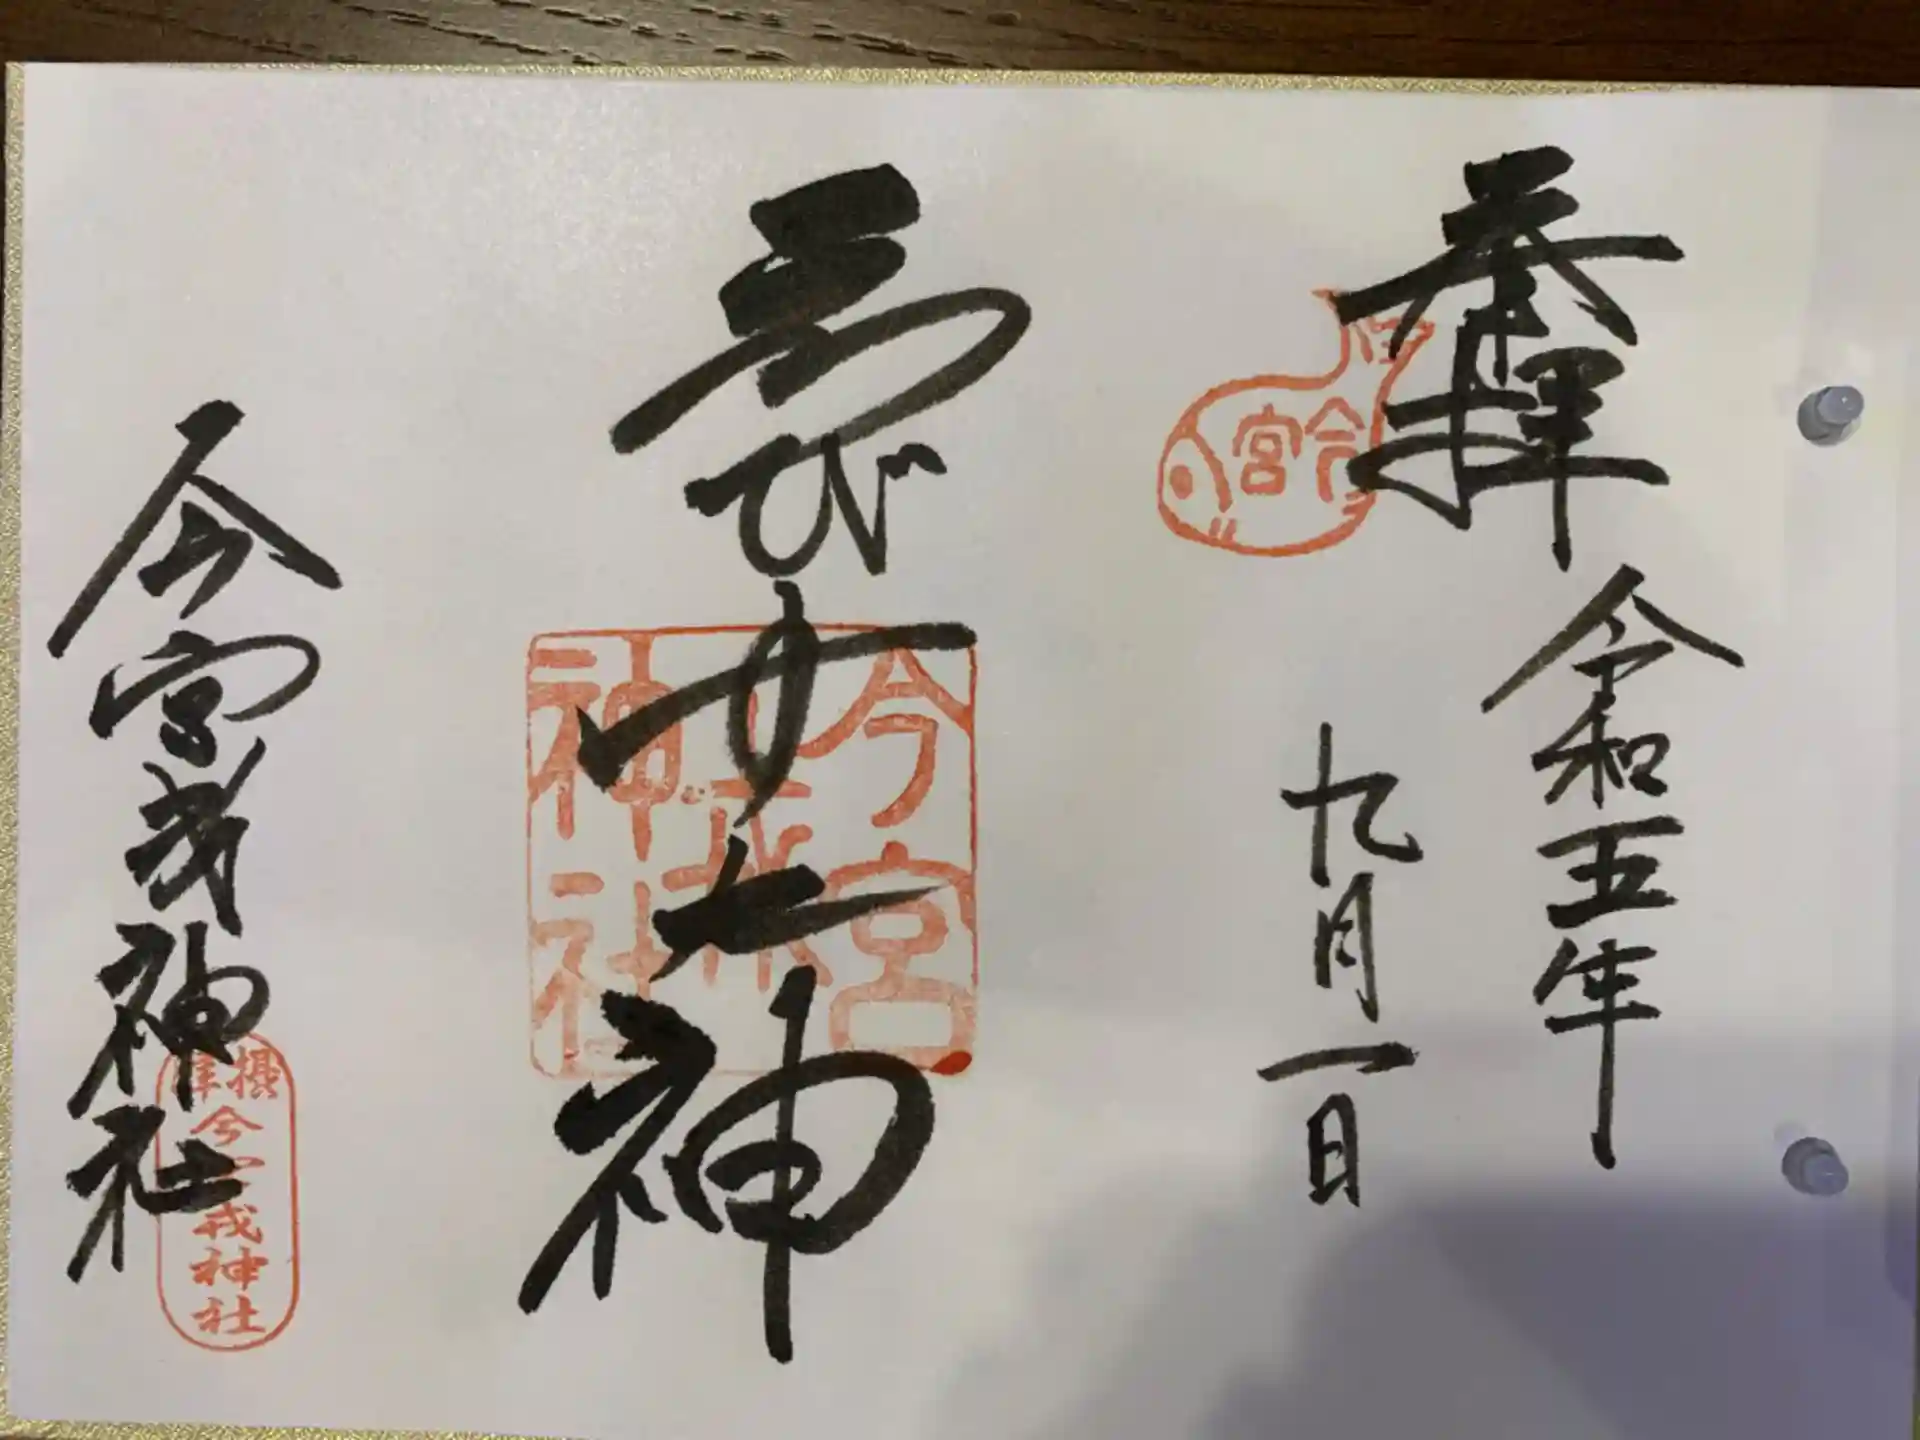 奉拝
令和五年
九月一日
今宮
ゑびす大神
今宮
戎
神社
今宮戎神社
摂津
今宮戎神社